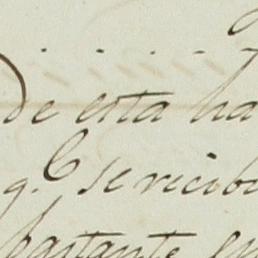 de esta ha
q.e se recibi
bastante en